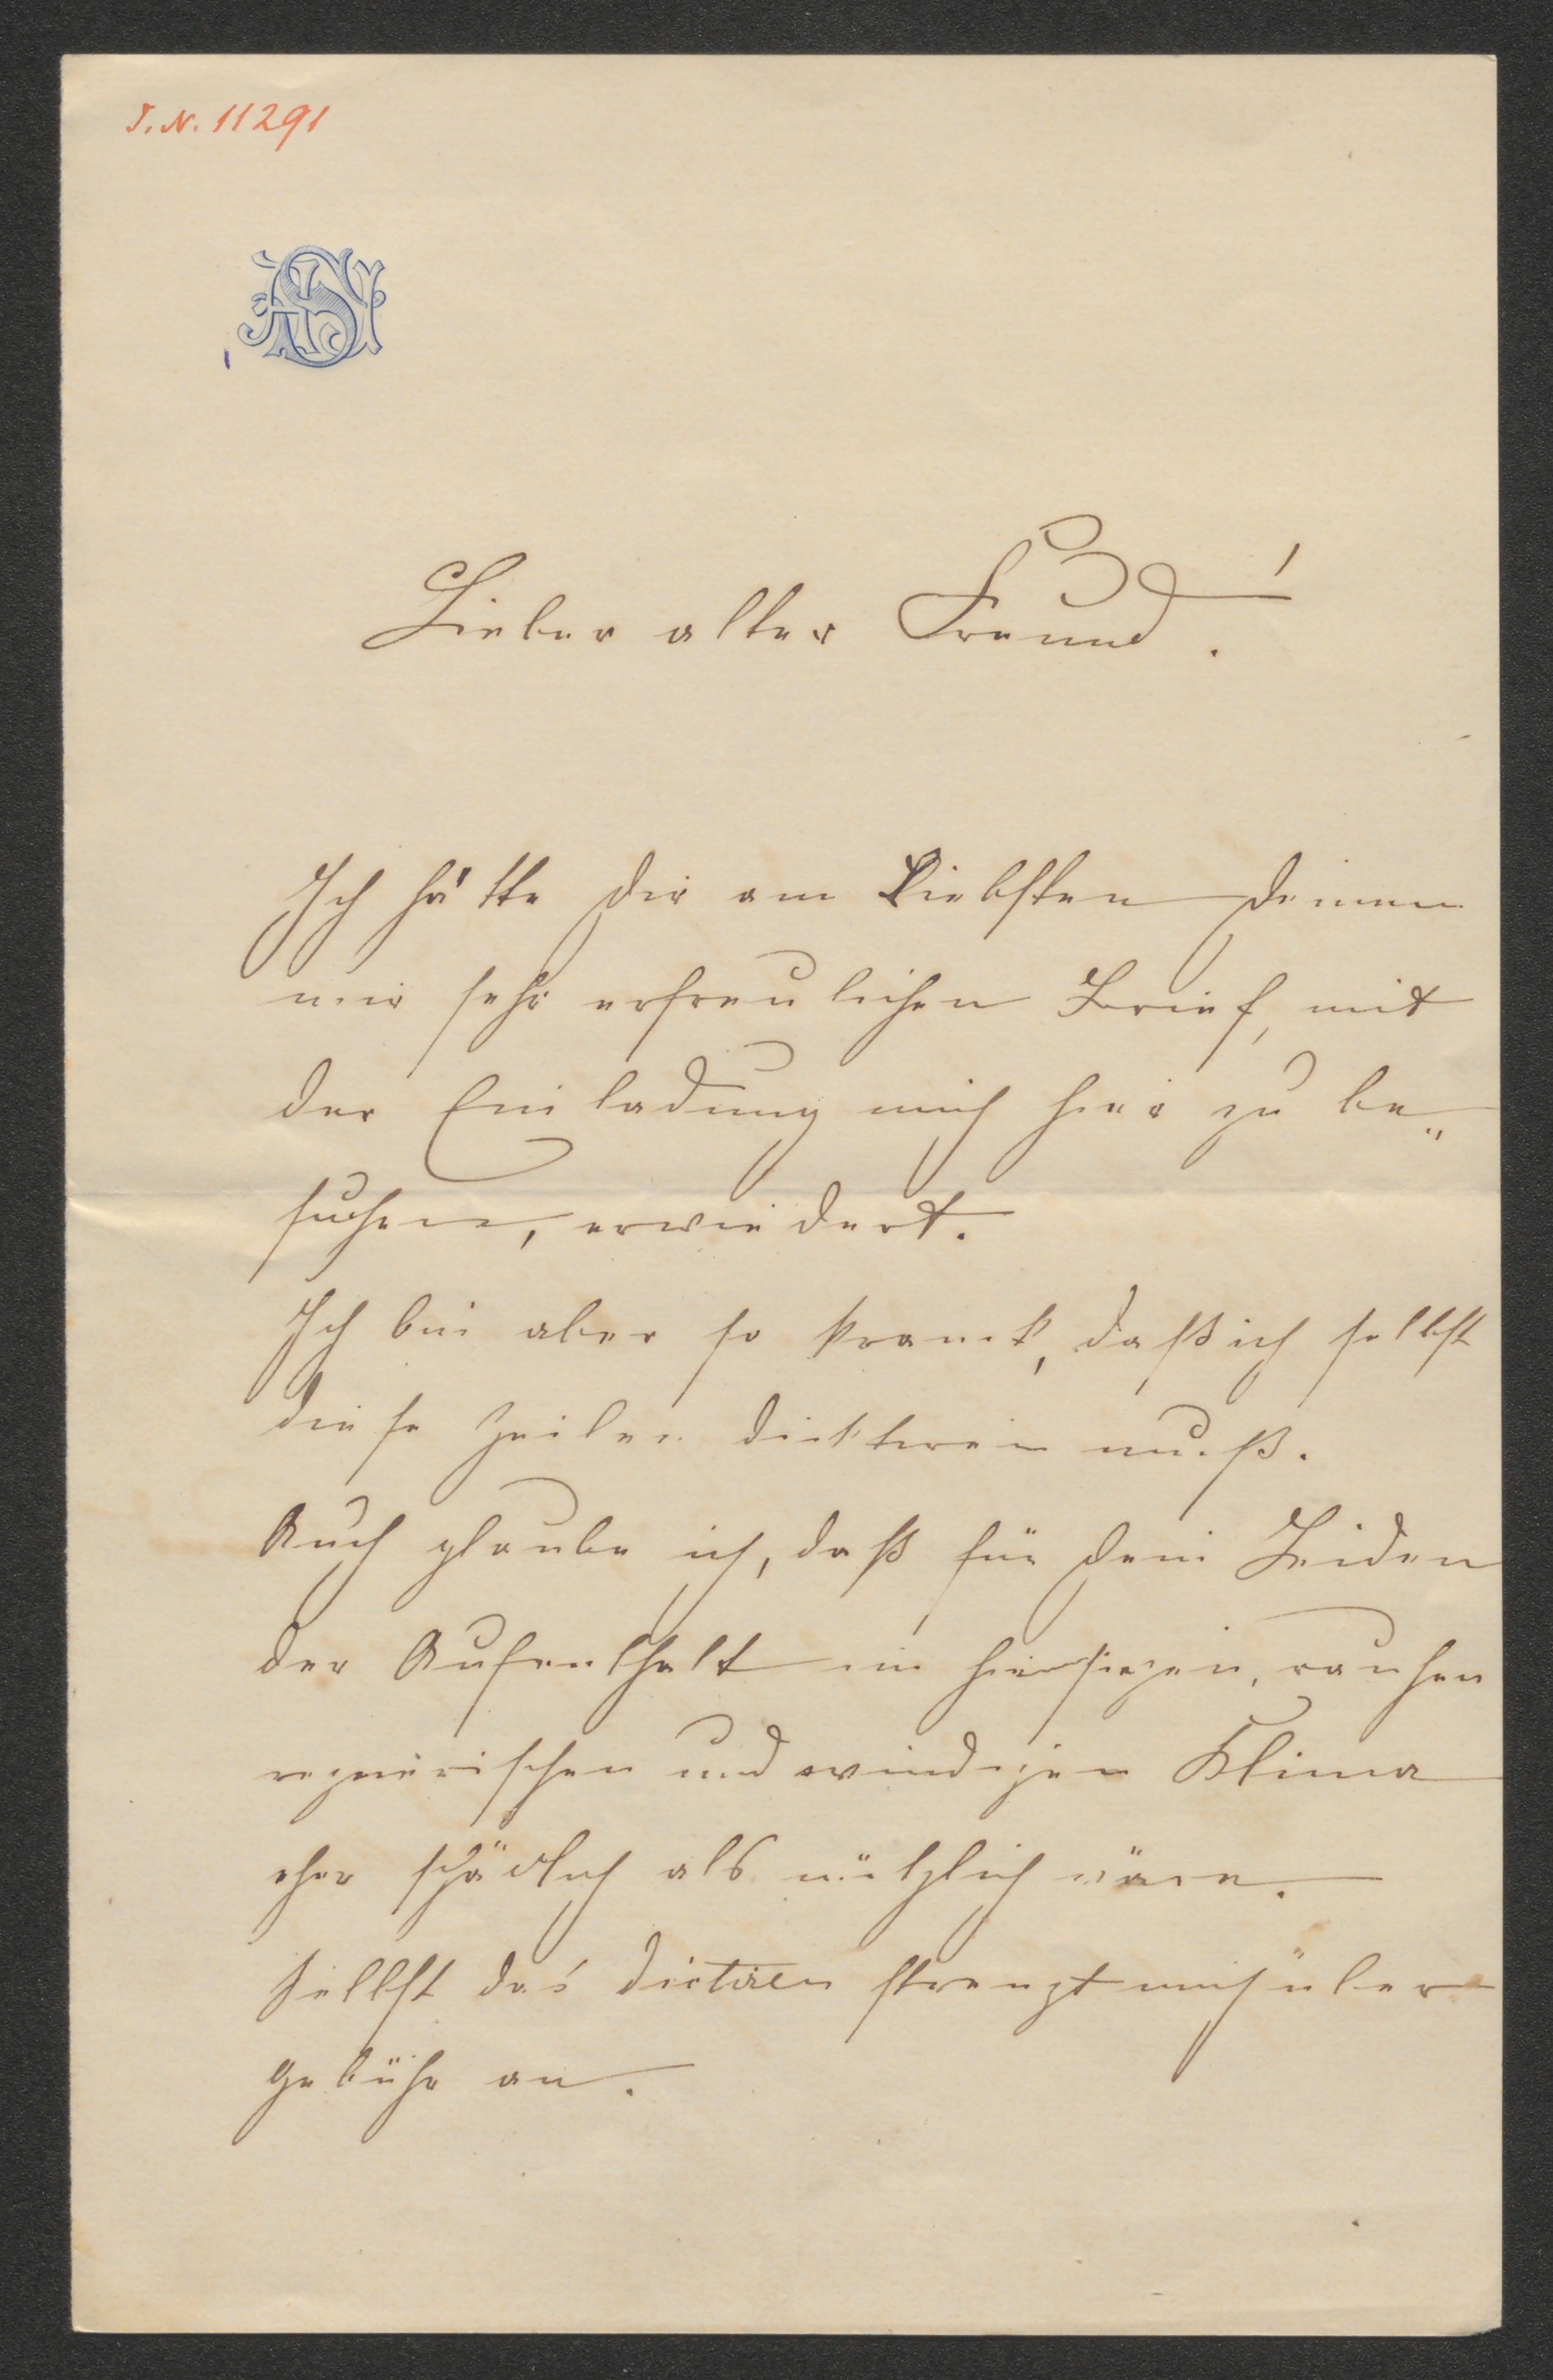 J. N. 11291
Lieber alter Freund!
Ich hätte Dir am Liebsten Deinen
mir sehr erfreulichen Brief, mit
der Einladung mich hier zu be„
suchen, erwiedert.
Ich bin aber so krank, daß ich selbst
diese Zeilen diktiren muß.
Auch glaube ich, daß für Dein Leiden
der Aufenthalt im hiersiegen, rauhen
regnerischen und windigen Klima
eher schädlich als nützlich wäre.
Selbst das dictiren strengt mich über
Gebühr an.